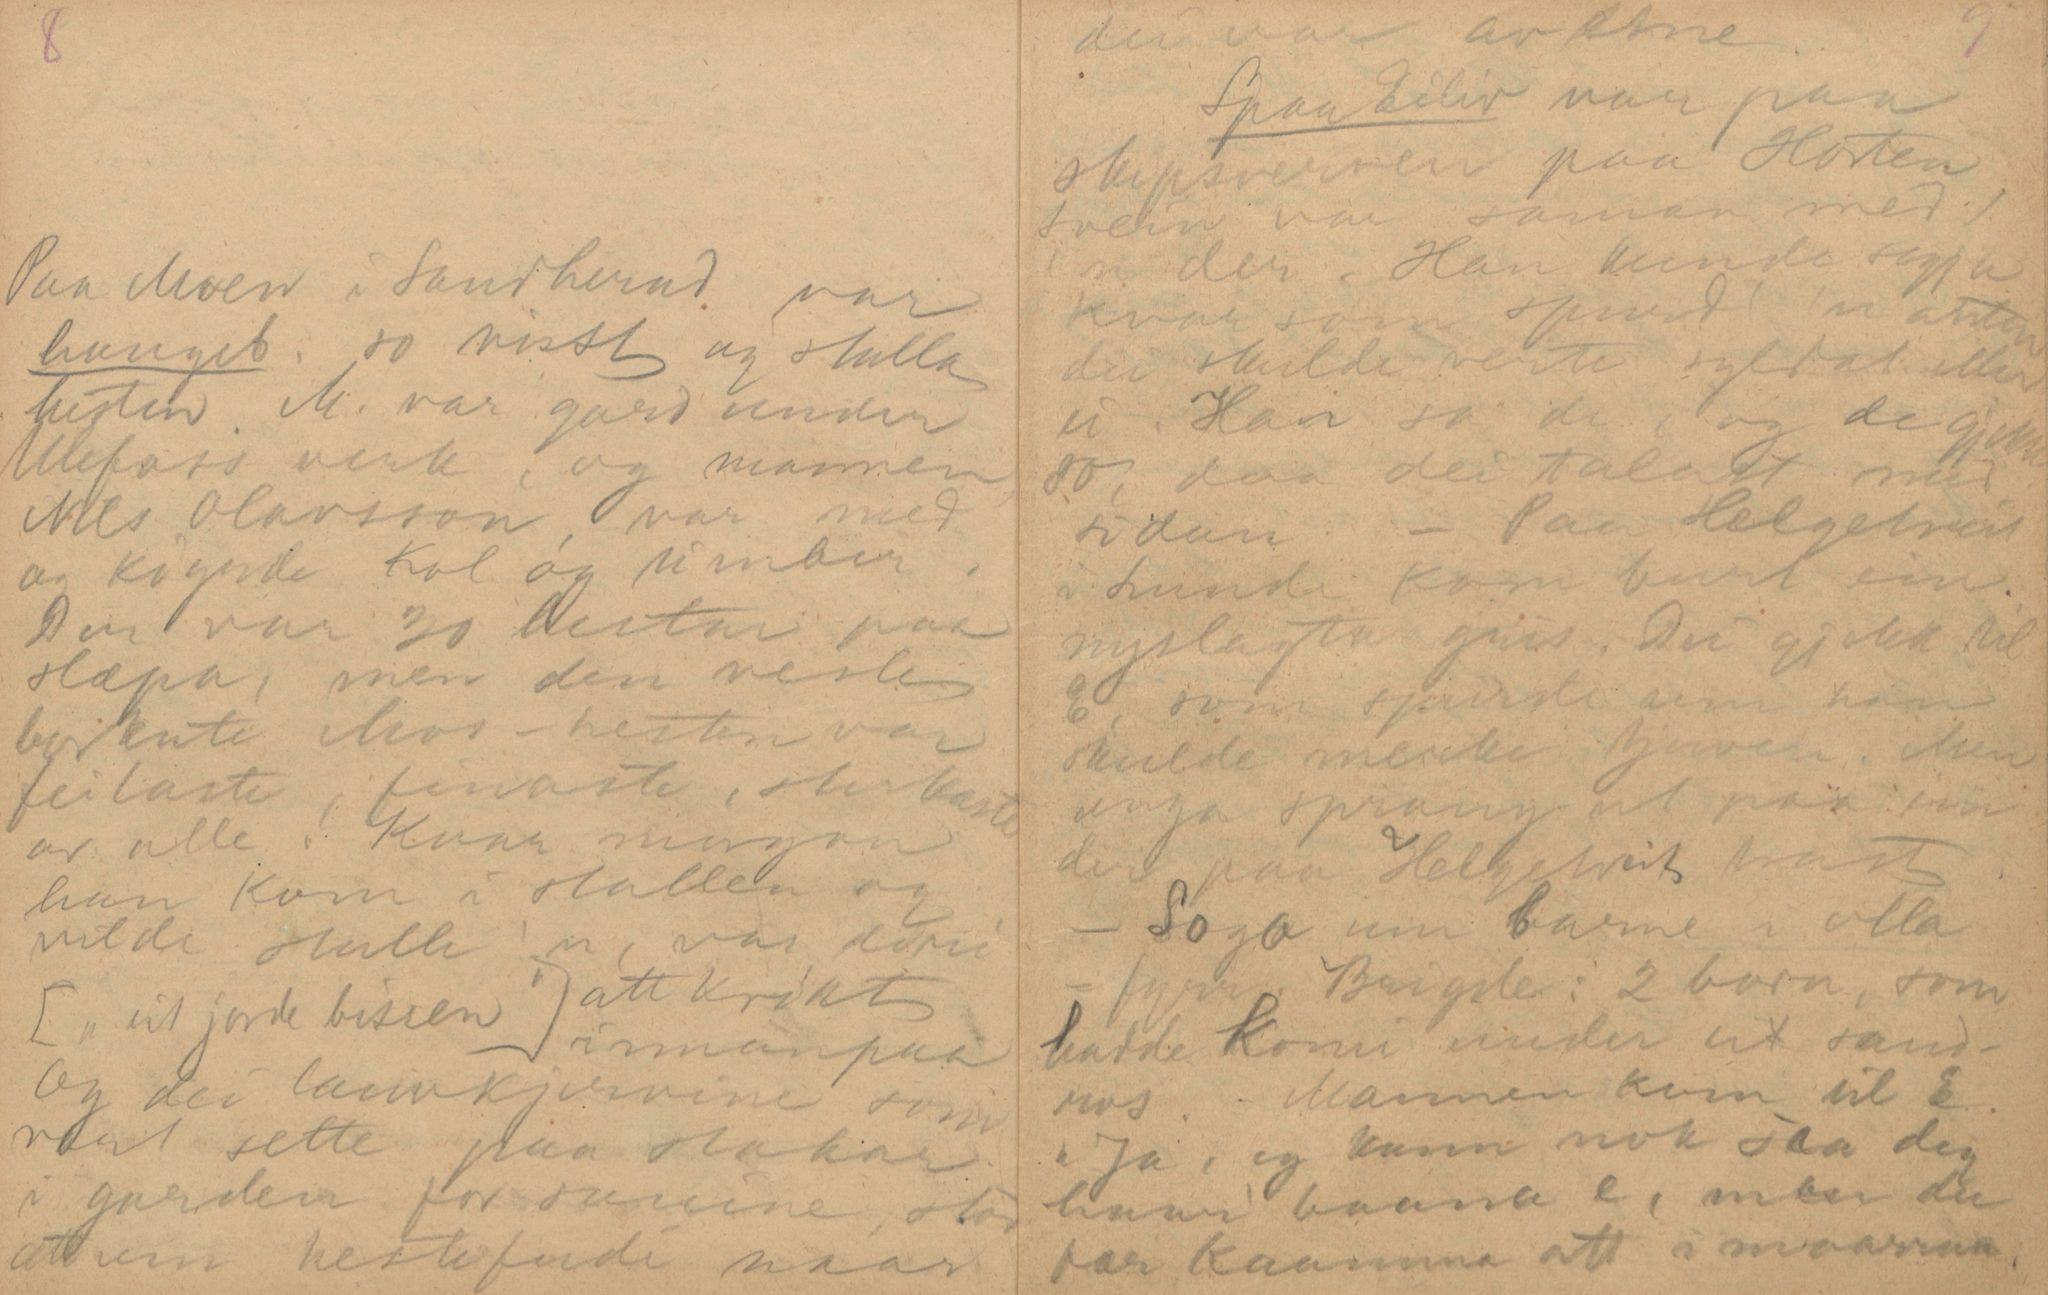 8
Paa Moen i Sandherad var
haugeb. so visst og stella
hesten. M. var gard under
Ulefoss verk, og mannen,
Nils Olavsson, var med
og køyrde kol og timber.
Der var 30 hestar paa
slæpa, men den vesle
borkute Mos-hesten var
feitaste, finaste, sterkaste
av alle! Kvar morgon
han kom i stallen og
vilde stelle 'n, var döri
[„ut jorde bissen"] att krökt
innanpaa
Og dei lauvkjervine som
vart sette paa stakar
i garden for sauine, stod
att um hestefudi naar
9
dei var avetne.
Spaa Eiliv var paa
skipsverven paa Horten
Svein var saman med
'n der. Han kunde segja
kvar som spurd' 'n anten
dei skulde verte soldat eller
ei. Han sa de, og de gjekk
so, daa dei talast med
sidan. – Paa Helgetveit
i Lunde kom burt ein
nyslagta gris. Dei gjekk til
E, som spurde um han
skulde merke tjuven. Men
auga sprang ut paa ein
der paa Helgetveit trast.
– Soga um barne i olla
– fyrr. Brigde: 2 born, som
hadde komi under eit sand-
ros. – Mannen kom til E.
„Ja, eg kann nok sèa deg
haar baana e, men du
fær kaamma att i maaraa.